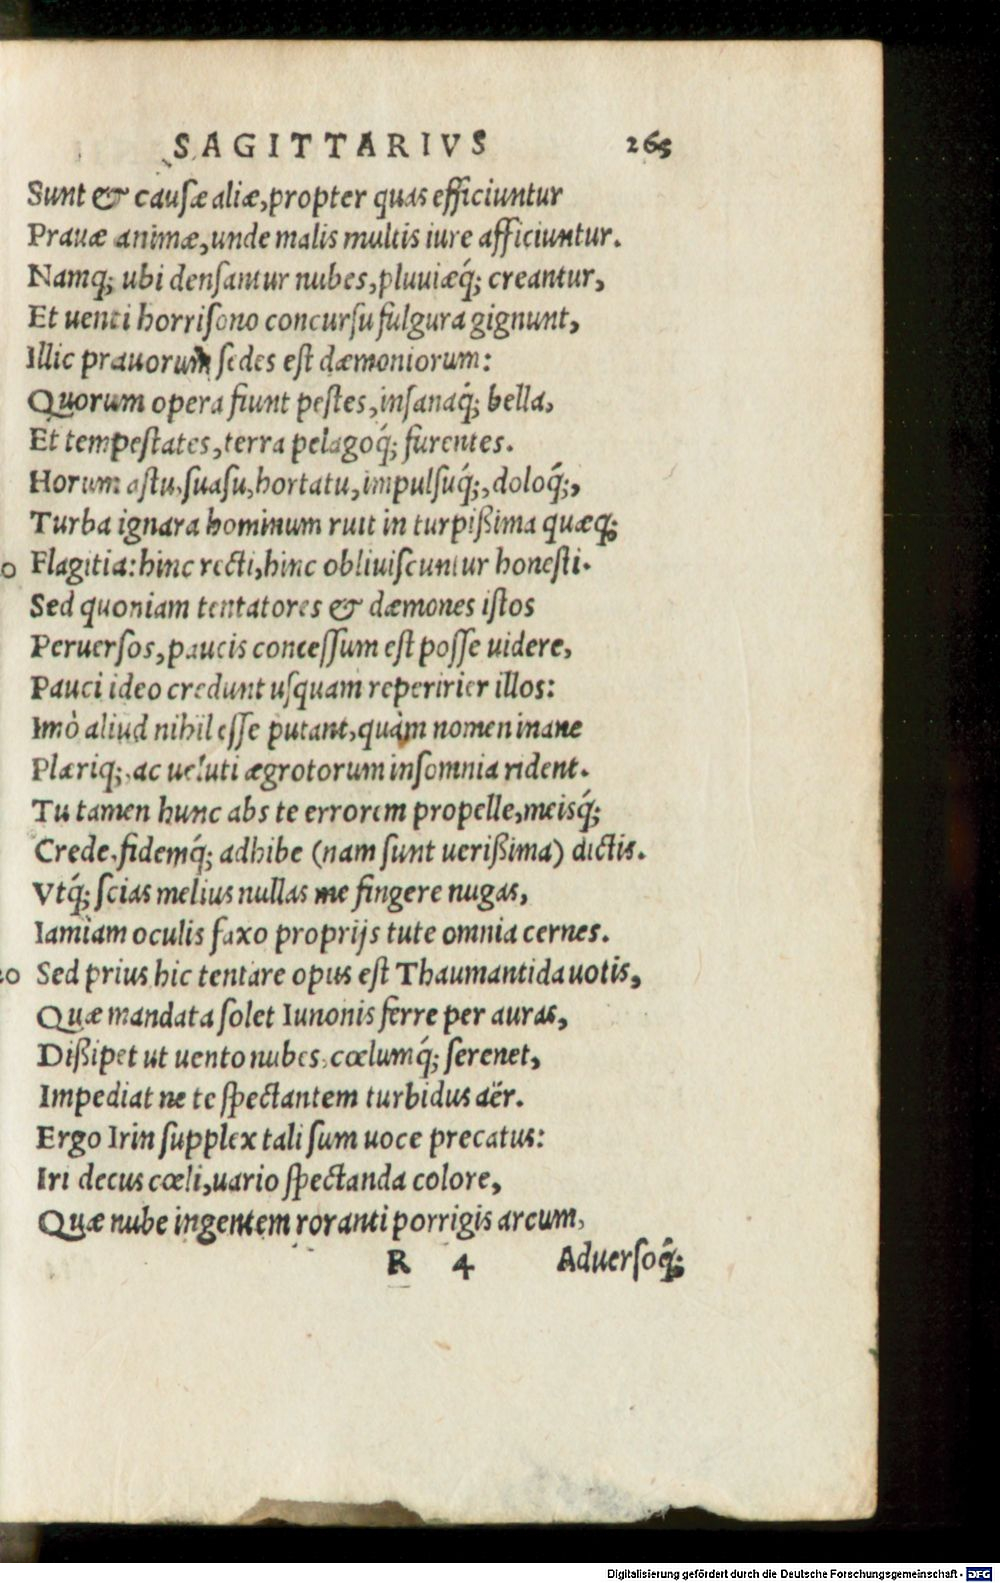 SAGITTARIVS 265
Sunt & causæ aliæ, propter quas efficiuntur
Prauæ animæ, unde malis multis iure afficiuntur.
Namq; ubi densantur nubes, pluuiæq́; creantur,
Et uenti horrisono concursu fulgura gignunt,
Illic prauorum sedes est dæmoniorum:
Quorum opera fiunt pestes, insanaq́; bella,
Et tempestates, terra pelagoq́; furentes.
Horum astu, suasu, hortatu, impulsuq́;, doloq́;,
Turba ignara hominum ruit in turpißima quæq;
Flagitia: hinc recti, hinc obliuiscuntur honesti.
Sed quoniam tentatores & dæmones istos
Peruersos, paucis concessum est posse uidere,
Pauci ideo credunt usquam reperirier illos:
Imò aliud nihil esse putant, quàm nomen inane
Plæriq;, ac ueluti ægrotorum insomnia rident.
Tu tamen hunc abs te errorem propelle, meisq́;
Crede, fidemq́; adhibe (nam sunt uerißima) dictis.
Vtq́; scias melius nullas me fingere nugas,
Iamiam oculis faxo proprijs tute omnia cernes.
20 Sed prius hic tentare opus est Thaumantida uotis,
Quæ mandata solet Iunonis ferre per auras,
Dißipet ut uento nubes, cœlumq́; serenet,
Impediat ne te spectantem turbidus aër.
Ergo Irin supplex tali sum uoce precatus:
Iri decus cœli, uario spectanda colore,
Quæ nube ingentem roranti porrigis arcum,
R 4 Aduersoq́;
Digitalisierung gefördert durch die Deutsche Forschungsgemeinschaft - DFG